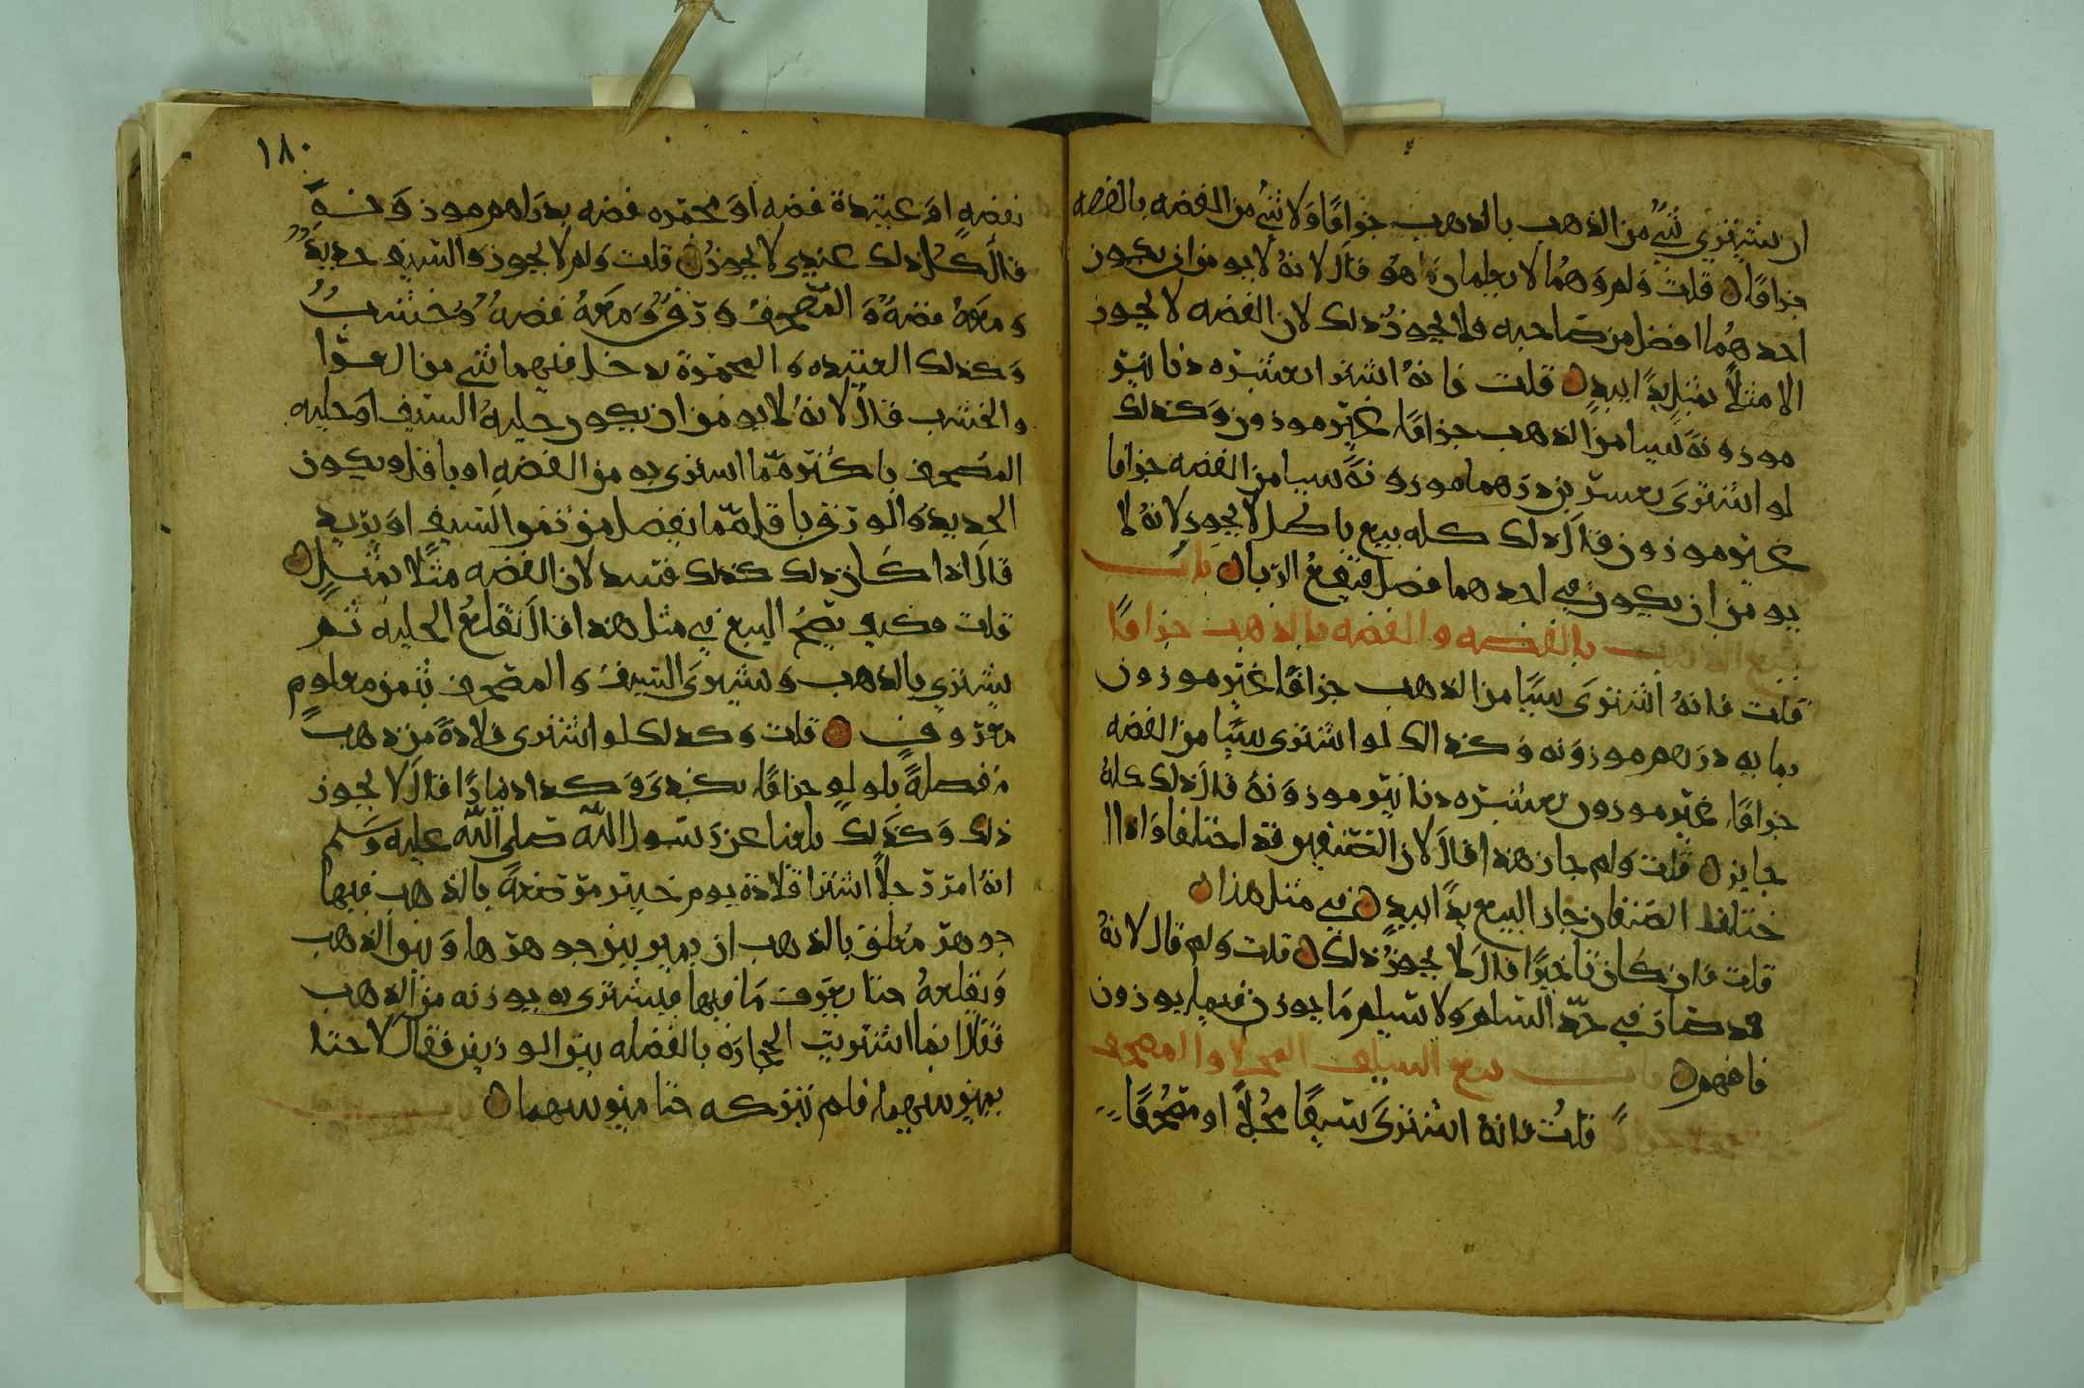 ان يشتري شي من الذهب بالذهب جزافا ولا شي من الفضه بالفضه
جزافا قلت ولم وهما لا يعلمان ما هو قال لانه لا يومن ان يكون
احدهما افضل من صاحبه ولا يجوز ذلك لان الفضه لا يجوز
الا مثلا بمثل يدا بيد قلت فانه اشترا بعشره دنانير
موزونه شيا من الذهب جزافا غير موزون وكذلك
لو اشترى بعشرين درهما موزونة شيا من الفضه جزافا
غير موزون قال ذلك كله بيع باطل لا يجوز لانه لا
يومن ان يكون في احدهما فضل فيقع الربا باب
بيع الذهب بالفضه والفضه بالذهب جزافا
قلت فانه اشترى شيا من الذهب جزافا غير موزون
بمايه درهم موزونه وكذالك لو اشترى شيا من الفضه
جزافا غير موزون بعشره دنانير موزونة قال ذلك كله
جايز قلت ولم جاز هذا قال لان الصنفين قد اختلفا واذا ا
ختلفا الصنفان جاز البيع يدا بيد في مثل هذا
قلت فان كان تاخيرا قال لا يجوز ذلك قلت ولم قال لانه
قد صار في حد السلم ولا يسلم ما يوزن فيما يوزن
فافهم باب بيع السيف المحلا والمصحف
قلت فانه اشترى سيفا محلا او مصحفا
١٨٠
بفضه او عتيدة فضه او مجمره فضه بدراهم موزونة
قال كل ذلك عندي لا يجوز قلت ولم لا يجوز والسيف حديد
ومعه فضه والمصحف ورق ومعه فضه وخشب
وكذلك العتيده والمجمرة يدخل فيهما شي من الغرا
والخشب قال لانه لا يومن ان يكون حلية السيف او حليه
المصحف باكثر مما اشترى به من الفضه او باقل ويكون
الحديد والورق باقل مما يفضل من ثمن السيف او يزيد
قال اذا كان ذلك كذلك فسد لان الفضه مثلا بمثل
قلت فكيف يصح البيع في مثل هذا قال تقلع الحليه ثم
يشتري بالذهب ويشترى السيف والمصحف بثمن معلوم
معروف قلت وكذلك لو اشترى قلادة من ذهب
مفصلة بلولو جزافا بكذى وكذا دينارا قال لا يجوز
ذلك وكذلك بلغنا عن رسول الله صلى الله عليه وسلم
انه امر رجلا اشترا قلادة يوم خيبر مرصعة بالذهب فيها
جوهر معلق بالذهب ان يميز بين جوهرها وبين الذهب
ويقلعه حتا يعرف ما فيها فيشترى به بوزنه من الذهب
فقال انما اشتريت الحجارة بالفضله بين الوزنين فقال لا حتا
يميز بينهما فلم يتركه حتا ميز بينهما